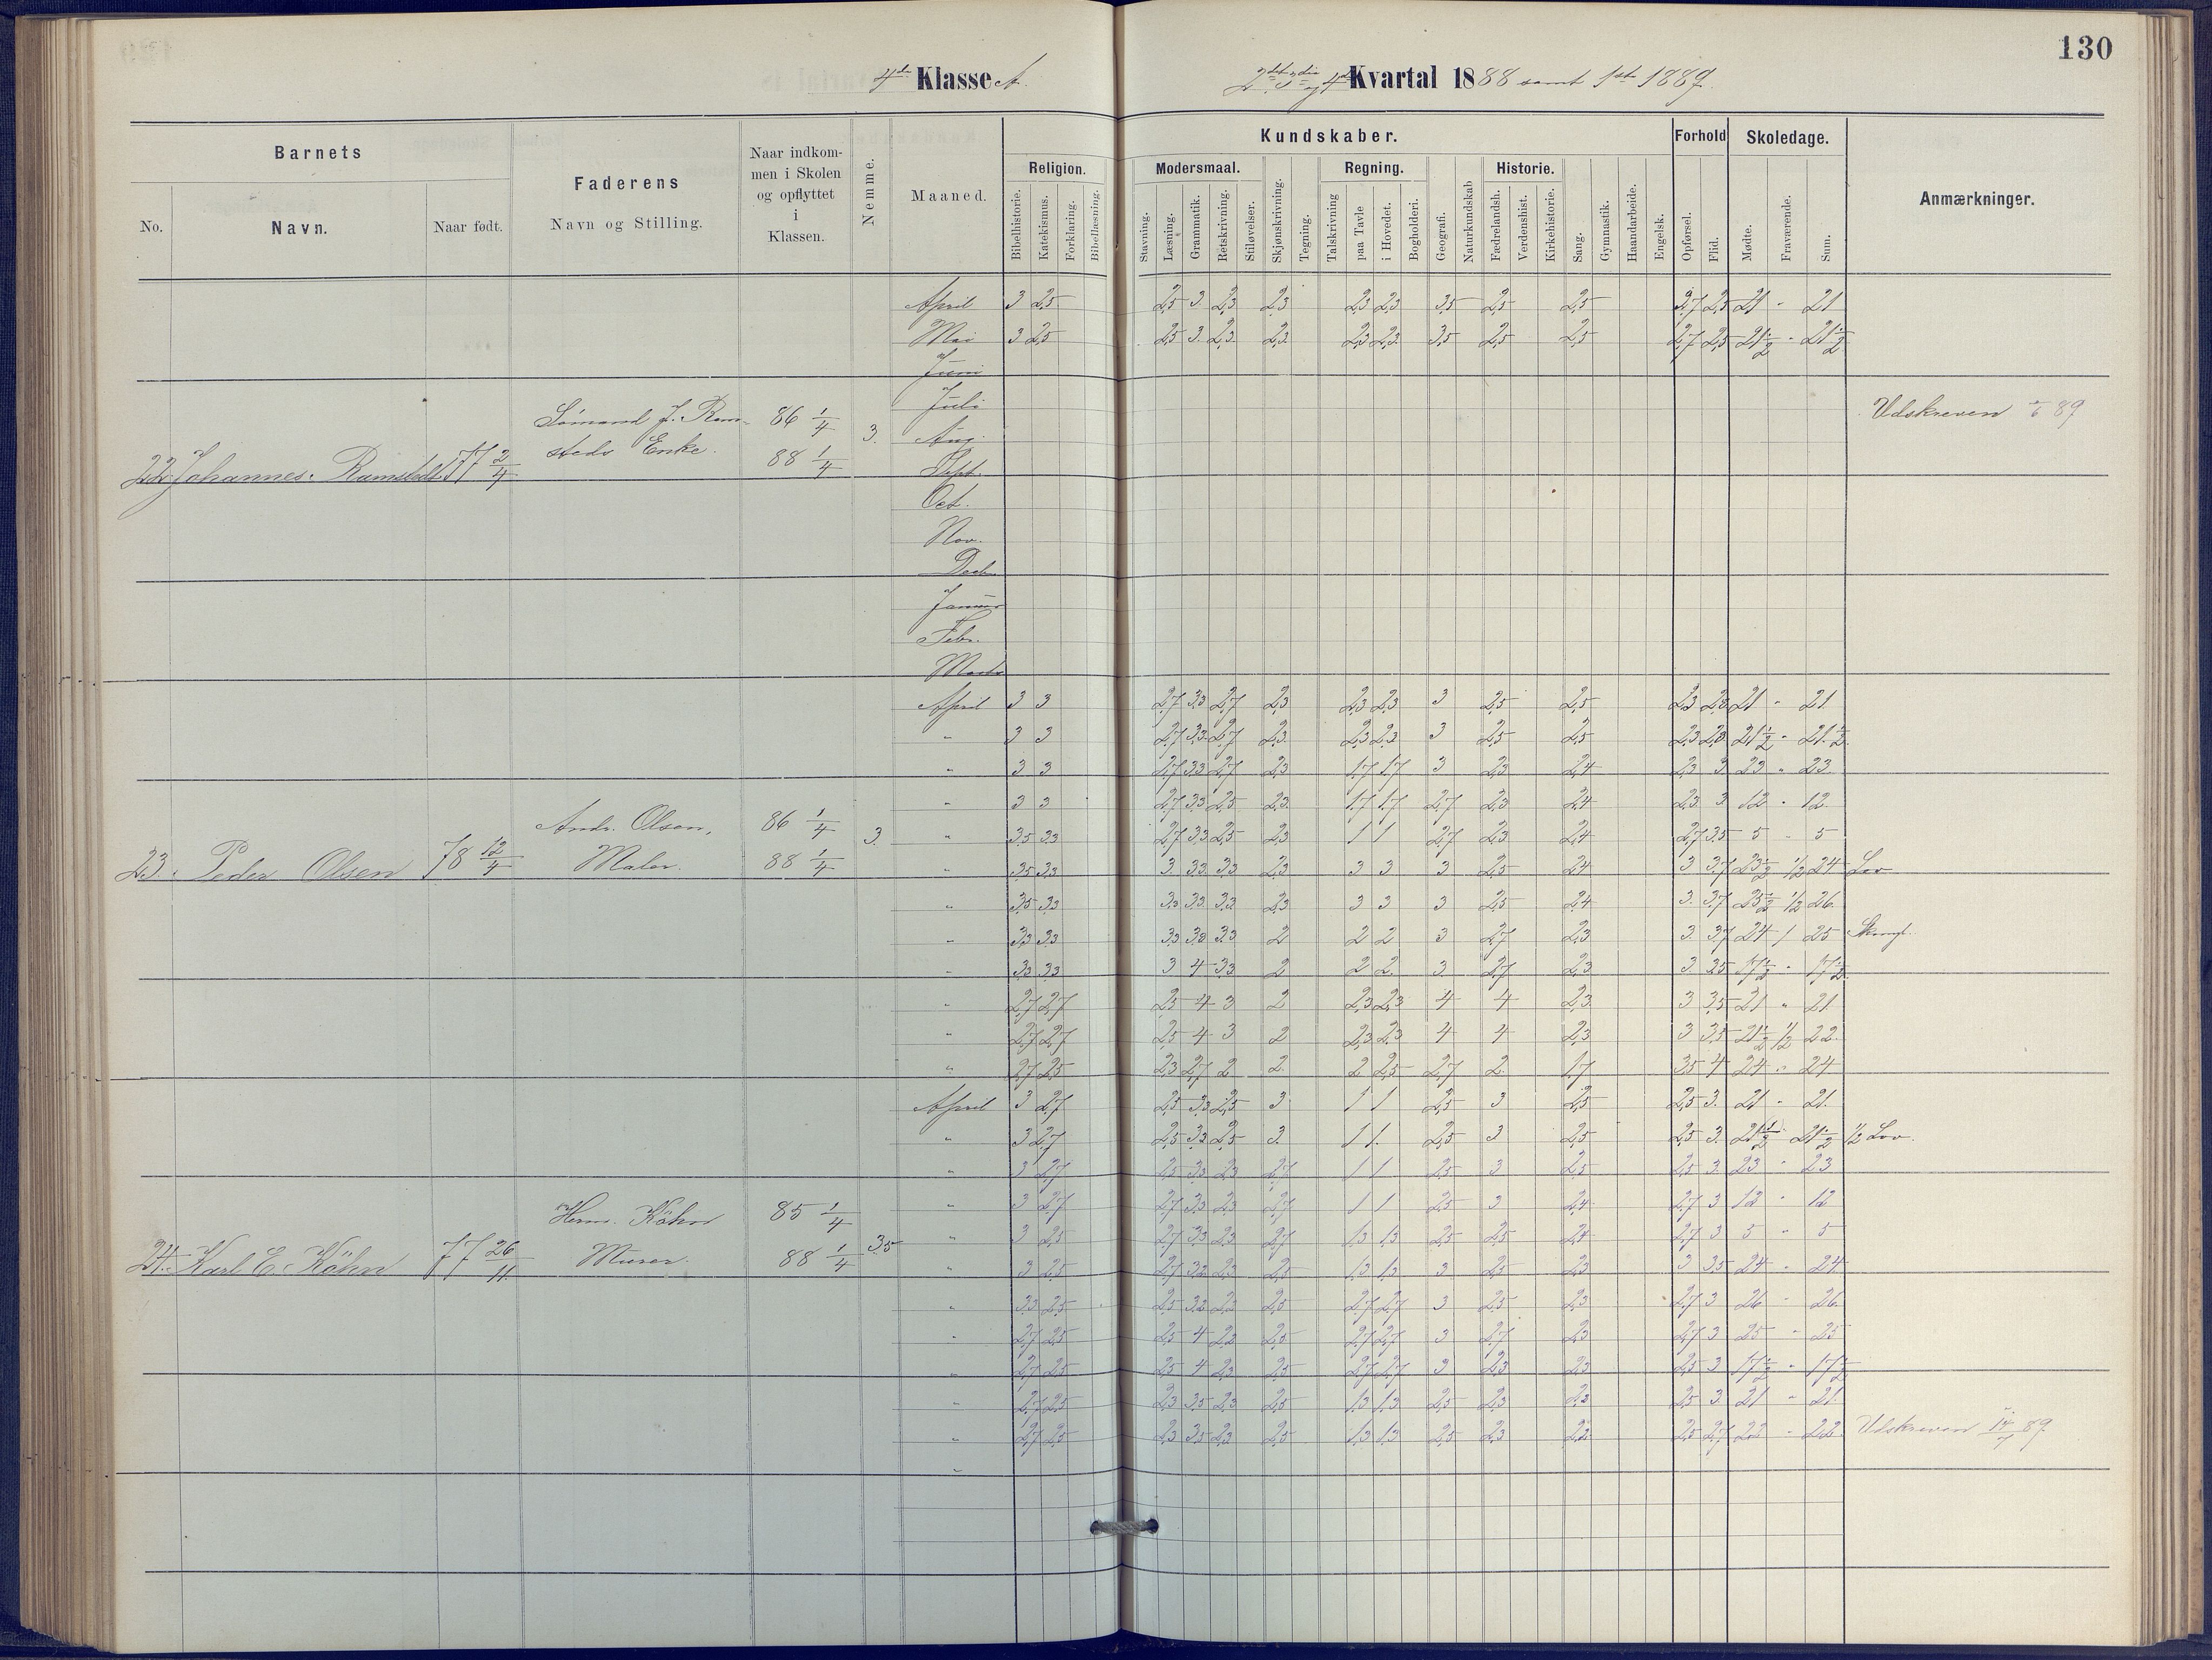 130
4de Klasse A.
2det 3die og 4de Kvartal 1888 samt 1ste 1889.
Barnets
Faderens
Naar indkommen i Skolen og opflyttet i Klassen.
Nemme.
Maaned.
Kundskaber.
Forhold
Skoledage.
Anmærkninger.
No.
Navn.
Naar født.
Navn og Stilling.
Religion.
Modersmaal.
Regning.
Historie.
Bibelhistorie.
Katekismus.
Forklaring.
Bibellæsning.
Stavning.
Læsning.
Grammatik.
Retskrivning.
Stiløvelser.
Skjønskrivning.
Tegning.
Talskrivning
paa Tavle
i Hovedet.
Bogholderi.
Geografi.
Naturkundskab
Fædrelandsh.
Verdenshist.
Kirkehistorie.
Sang.
Gymnastik.
Haandarbeide.
Engelsk.
Opførsel.
Flid.
Mødte.
Fraværende.
Sum.
April 3 2,5 2,5 3 2,3 2,3 2,3 2,3 3,5 2,5 2,5 2,7 2,5 21 - 21
Mai 3 2,5 2,5 3 2,3 2,3 2,3 2,3 3,5 2,5 2,5 2,7 2,5 21 1/2 - 21 1/2
Juni
Juli
Udskreven 89
Sømand J. Ram-
86 1/4
Aug.
3.
steds Enke.
88 1/4
Sept.
22 Johannes Ramstedt 77 2/4
Oct.
Nov.
Decbr
Januar
Febr.
Marts
April 3 3 2,7 3,3 2,7 2,3 2,3 2,3 3 2,5 2,5 2,3 2,3 21 - 21
" 3 3 2,7 3,3 2,7 2,3 2,3 2,3 3 2,5 2,5 2,3 2,3 21 1/2 - 21 1/2
" 3 3 2,7 3,3 2,7 2,3 1,7 1,7 3 2,3 2,4 2,3 3 23 " 23
" 3 3 2,7 3,3 2,5 2,3 1,7 1,7 2,7 2,3 2,4 2,3 3 12 - 12
Andr. Olsen,
86 1/4
3.
" 3,5 3,3 2,7 3,3 2,5 2,3 1 1 2,7 2,3 2,4 2,7 3,5 5 - 5
23. Peder Olsen 78 12/4
Maler.
88 1/4
" 3,5 3,3 3 3,3 3,3 2,3 3 3 3 2,5 2,4 3 3,7 23 1/2 1/2 24 Lov
" 3,5 3,3 3,3 3,3 3,3 2,3 3 3 3 2,5 2,4 3 3,7 25 1/2 1/2 26
" 3,3 3,3 3,3 3,3 3,3 2 2 2 3 2,7 2,3 3 3,7 24 1 25
" 3,3 3,3 3 4 3,3 2 2 2 3 2,7 2,3 3 3,5 17 1/2 - 17 1/2
" 2,7 2,7 2,5 4 3 2 2,3 2,3 4 4 2,3 3 3,5 21 " 21
" 2,7 2,7 2,5 4 3 2 2,3 2,3 4 4 2,3 3 3,5 21 1/2 1/2 22
" 2,7 2,5 2,3 2,7 2 2 2 2,5 2,7 2 1,7 3,5 4 24 " 24
April 3 2,7 2,5 3,3 2,5 3 1 1 2,5 3 2,5 2,5 3 21 - 21
" 3 2,7 2,5 3,3 2,5 3 1 1 2,5 3 2,5 2,5 3 21 1/2 - 21 1/2 1/2 Lov.
" 3 2,7 2,5 3,3 2,3 2,7 1 1 2,5 3 2,5 2,5 3 23 - 23
Herm. Köhn
85 1/4
" 3 2,7 2,7 3,3 2,3 2,7 1 1 2,5 3 2,4 2,7 3 12 - 12
3,5
" 3 2,5 2,7 3,3 2,3 2,7 1,3 1,3 2,5 2,5 2,4 2,7 3 5 - 5
24. Karl E. Köhn 77 26/11
Murer.
88 1/4
" 3 2,5 2,7 3,2 2,3 2,5 1,3 1,3 3 2,5 2,3 3 3,5 24 - 24
" 3,3 2,5 2,5 3,2 2,2 2,5 2,7 2,7 3 2,5 2,3 2,7 3 26 - 26
" 2,7 2,5 2,5 4 2,2 2,5 2,7 2,7 3 2,7 2,3 2,7 3 25 - 25
" 2,7 2,5 2,5 4 2,3 2,5 2,7 2,7 3 2,3 2,3 2,5 3 17 1/2 - 17 1/2
" 2,7 2,5 2,3 3,5 2,3 2,5 1,3 1,3 2,5 2,3 2,2 2,5 3 21 - 21
" 2,7 2,5 2,3 3,5 2,3 2,5 1,3 1,3 2,5 2,3 2,2 2,5 2,7 22 - 22 Udskreven 89
"